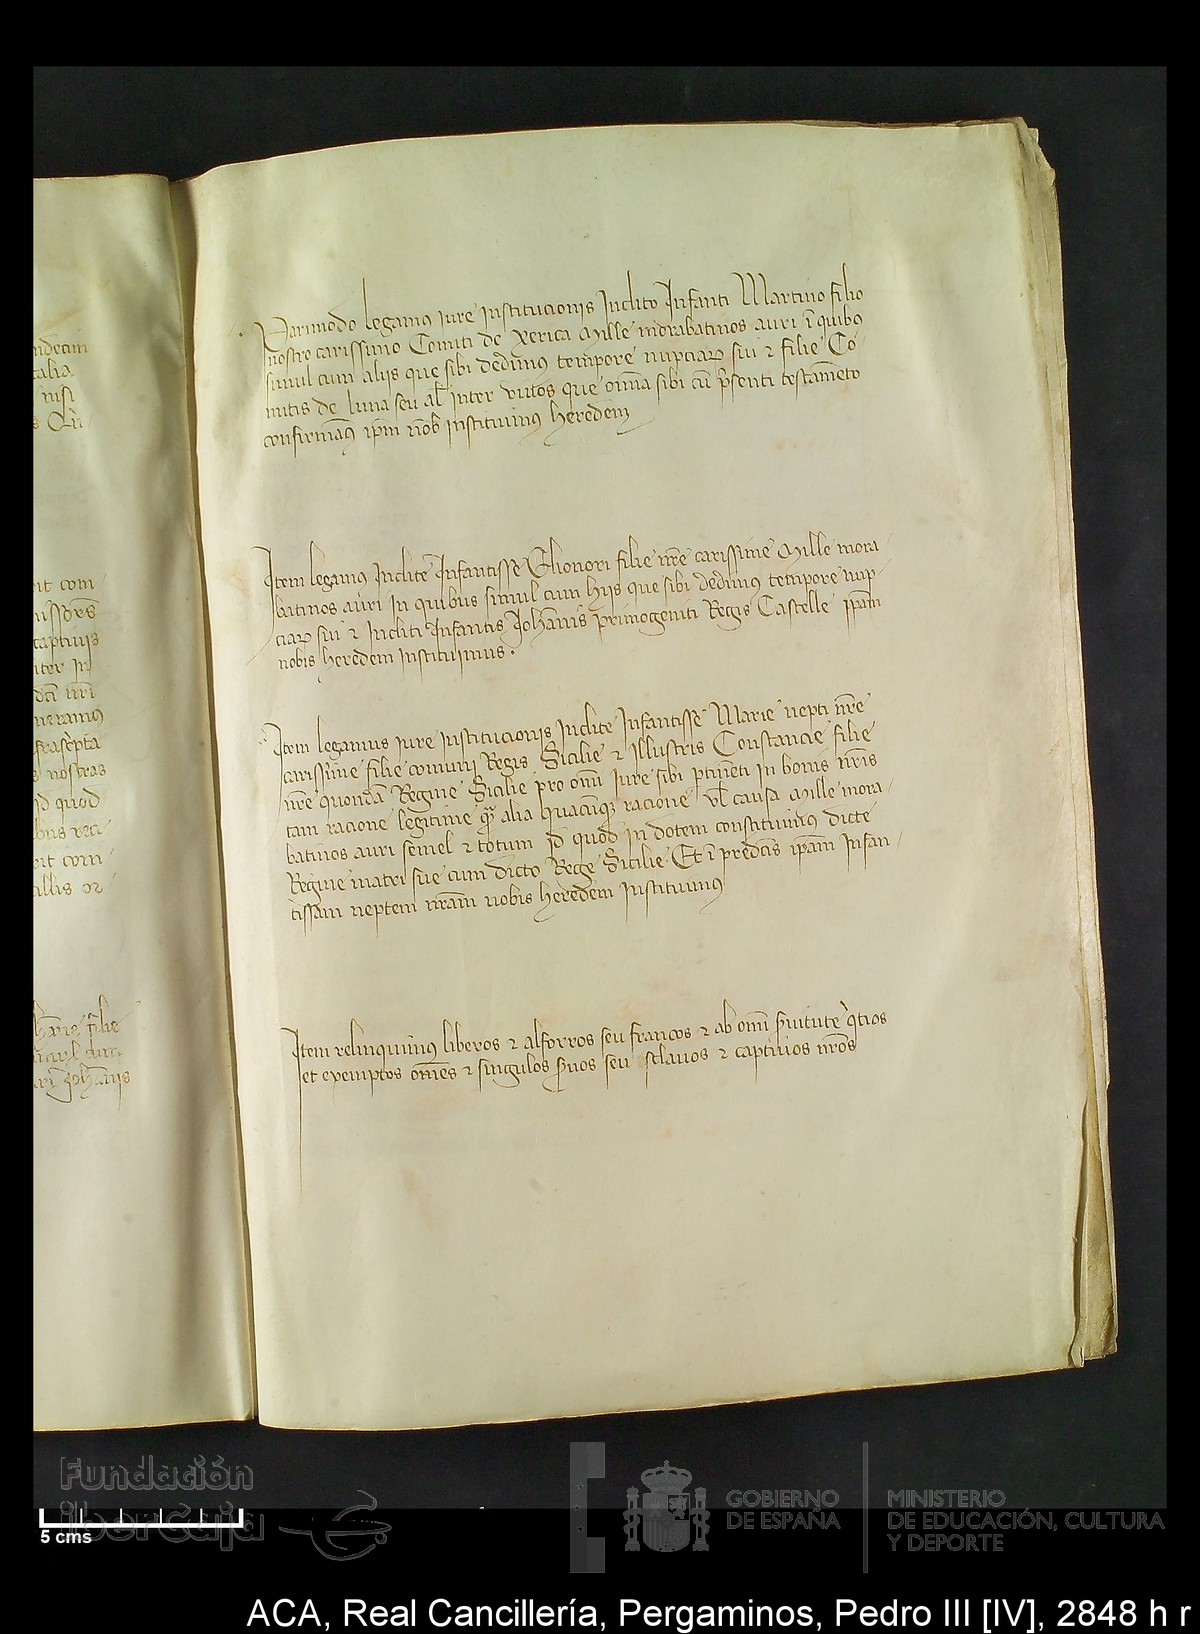 ndecim
talia
nisi
s Qñ
oit com
missões
captiuis
iter in
dci nri
neramus
frasc̀pta
s nostras
id quod
oit com
illis

Parimodo legamus iure institucionis Inclito Infanti Martino filio
nostro carissimo Comiti de Xerica Mille morabatinos auri ĩ quibus
simul cum aliis que sibi dedimus tempore nupciaꝝ sui ⁊ filie Co
mitis de luna seu al̃ inter viuos que om̃ia sibi cũ p̃senti testam̃eto
confirmam̃us ip̃m nob̃ instituimus heredem
Item legamus Inclite Infantisse Elionori filie nr̃e carissime Mille mora
batinos auri in quibus simul cum hiis que sibi dedimus tempore nup
ciaꝝ sui ⁊ Incliti Infantis Joh̃annis primogeniti Regis Castelle ip̃am
nobis heredem instituimus.
Item legamus iure institucionis Inclite Infantisse Marie nepti nr̃e
carissime filie comuni Regis Sicilie ⁊ Illustris Constancie filie
nr̃e quondã Regine Sicilie pro om̃i iure sibi ptinẽti in bonis nr̃is
tam racione legitime q̃ȝ alia quacũqȝ racione vl̃ causa Mille mora
batinos auri semel ⁊ totum id quod in dotem constituimus dicte
Regine matri sue cum dicto Rege Sicilie. Et ĩ predc̃is ip̃am Infan
tissam neptem nr̃am nobis heredem instituimus
Item relinquimus liberos ⁊ alforros seu francos ⁊ ab om̃i s̃uitute q̀tios
et exemptos om̃es ⁊ singulos s̃uos seu sclauos ⁊ captiuos nr̃os
Fundación
iberCaja
5 cms
GOBIERNO
DE ESPAÑA
MINISTERIO
DE EDUCACIÓN, CULTURA
Y DEPORTE
ACA, Real Cancillería, Pergaminos, Pedro III [IV], 2848 h r